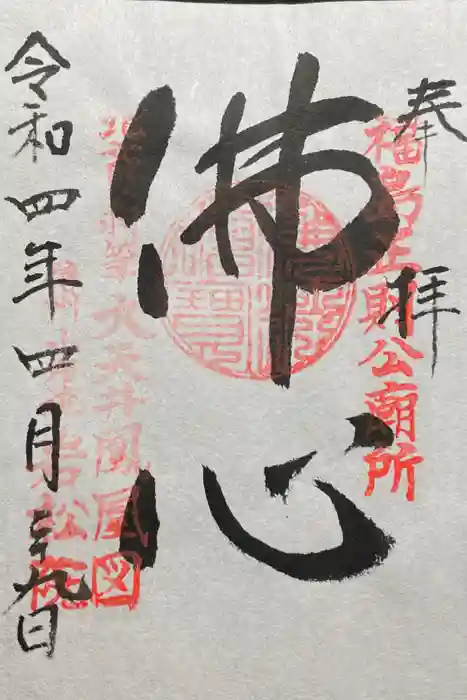 奉拝
福島正則公廟所
佛心
大天井鳳凰図
岩松院
令和四年四月二十九日